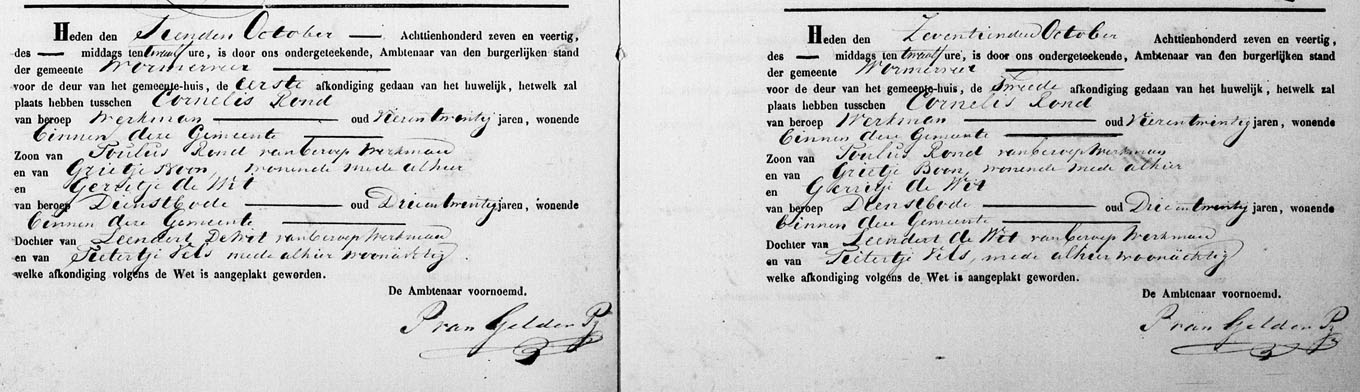 Heden den Tienden October — Achttienhonderd zeven en veertig,
des — middags ten twaalf ure, is door ons ondergeteekende, Ambtenaar van den burgerlijken stand
der gemeente Wormerveer
voor de deur van het gemeente-huis, de Eerste afkondiging gedaan van het huwelijk, hetwelk zal
plaats hebben tusschen Cornelis Rond
van beroep Werkman oud Vierentwintig jaren, wonende
binnen deze Gemeente
Zoon van Poulus Rond van beroep Werkman
en van Grietje Boon, wonende mede alhier
en Gerritje de Wit
van beroep Dienstbode oud Drieentwintig jaren, wonende
binnen deze Gemeente
Dochter van Leendert De Wit van beroep Werkman
en van Pietertje Vels mede alhier woonachtig
welke afkondiging volgens de Wet is aangeplakt geworden.
De Ambtenaar voornoemd.
P van Gelder Pz
Heden den Zeventienden October Achttienhonderd zeven en veertig,
des — middags ten twaalf ure, is door ons ondergeteekende, Ambtenaar van den burgerlijken stand
der gemeente Wormerveer
voor de deur van het gemeente-huis, de tweede afkondiging gedaan van het huwelijk, hetwelk zal
plaats hebben tusschen Cornelis Rond
van beroep Werkman oud Vierentwintig jaren, wonende
binnen deze Gemeente
Zoon van Poulus Rond van beroep Werkman
en van Grietje Boon, wonende mede alhier
en Gerritje de Wit
van beroep Dienstbode oud Drieentwintig jaren, wonende
binnen deze Gemeente
Dochter van Leendert de Wit van beroep Werkman
en van Pietertje Vels, mede alhier woonachtig
welke afkondiging volgens de Wet is aangeplakt geworden.
De Ambtenaar voornoemd.
P van Gelder Pz